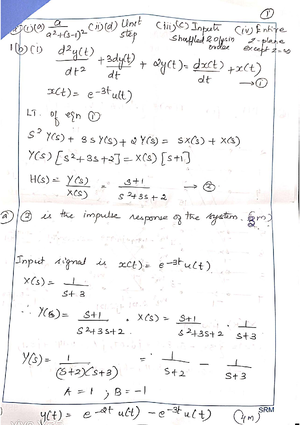 ①
1)(i)(a) a/(a²+(s-1)²) (ii)(d) Unit step (iii)(c) Inputs shuffled 2 olp in index (iv) Entire z-plane except z=∞
1(b)(i) d²y(t)/dt² + 3dy(t)/dt + 2y(t) = dx(t)/dt + x(t) → ①
x(t) = e^-3t u(t)
LT. of eqn ①
S² Y(s) + 3 s Y(s) + 2 Y(s) = SX(s) + X(s)
Y(s) [s²+3s+2] = X(s) [s+1]
H(s) = Y(s)/X(s) = (s+1)/(s²+3s+2) → ②
② is the impulse response of the system.
Input signal is x(t) = e^-3t u(t)
X(s) = 1/(s+3)
∴ Y(s) = (s+1)/(s²+3s+2) . X(s) = (s+1)/(s²+3s+2) . 1/(s+3)
Y(s) = 1/((s+2)(s+3)) = 1/(s+2) - 1/(s+3)
A = 1 ; B = -1
y(t) = e^-2t u(t) - e^-3t u(t) (4m)
SRM